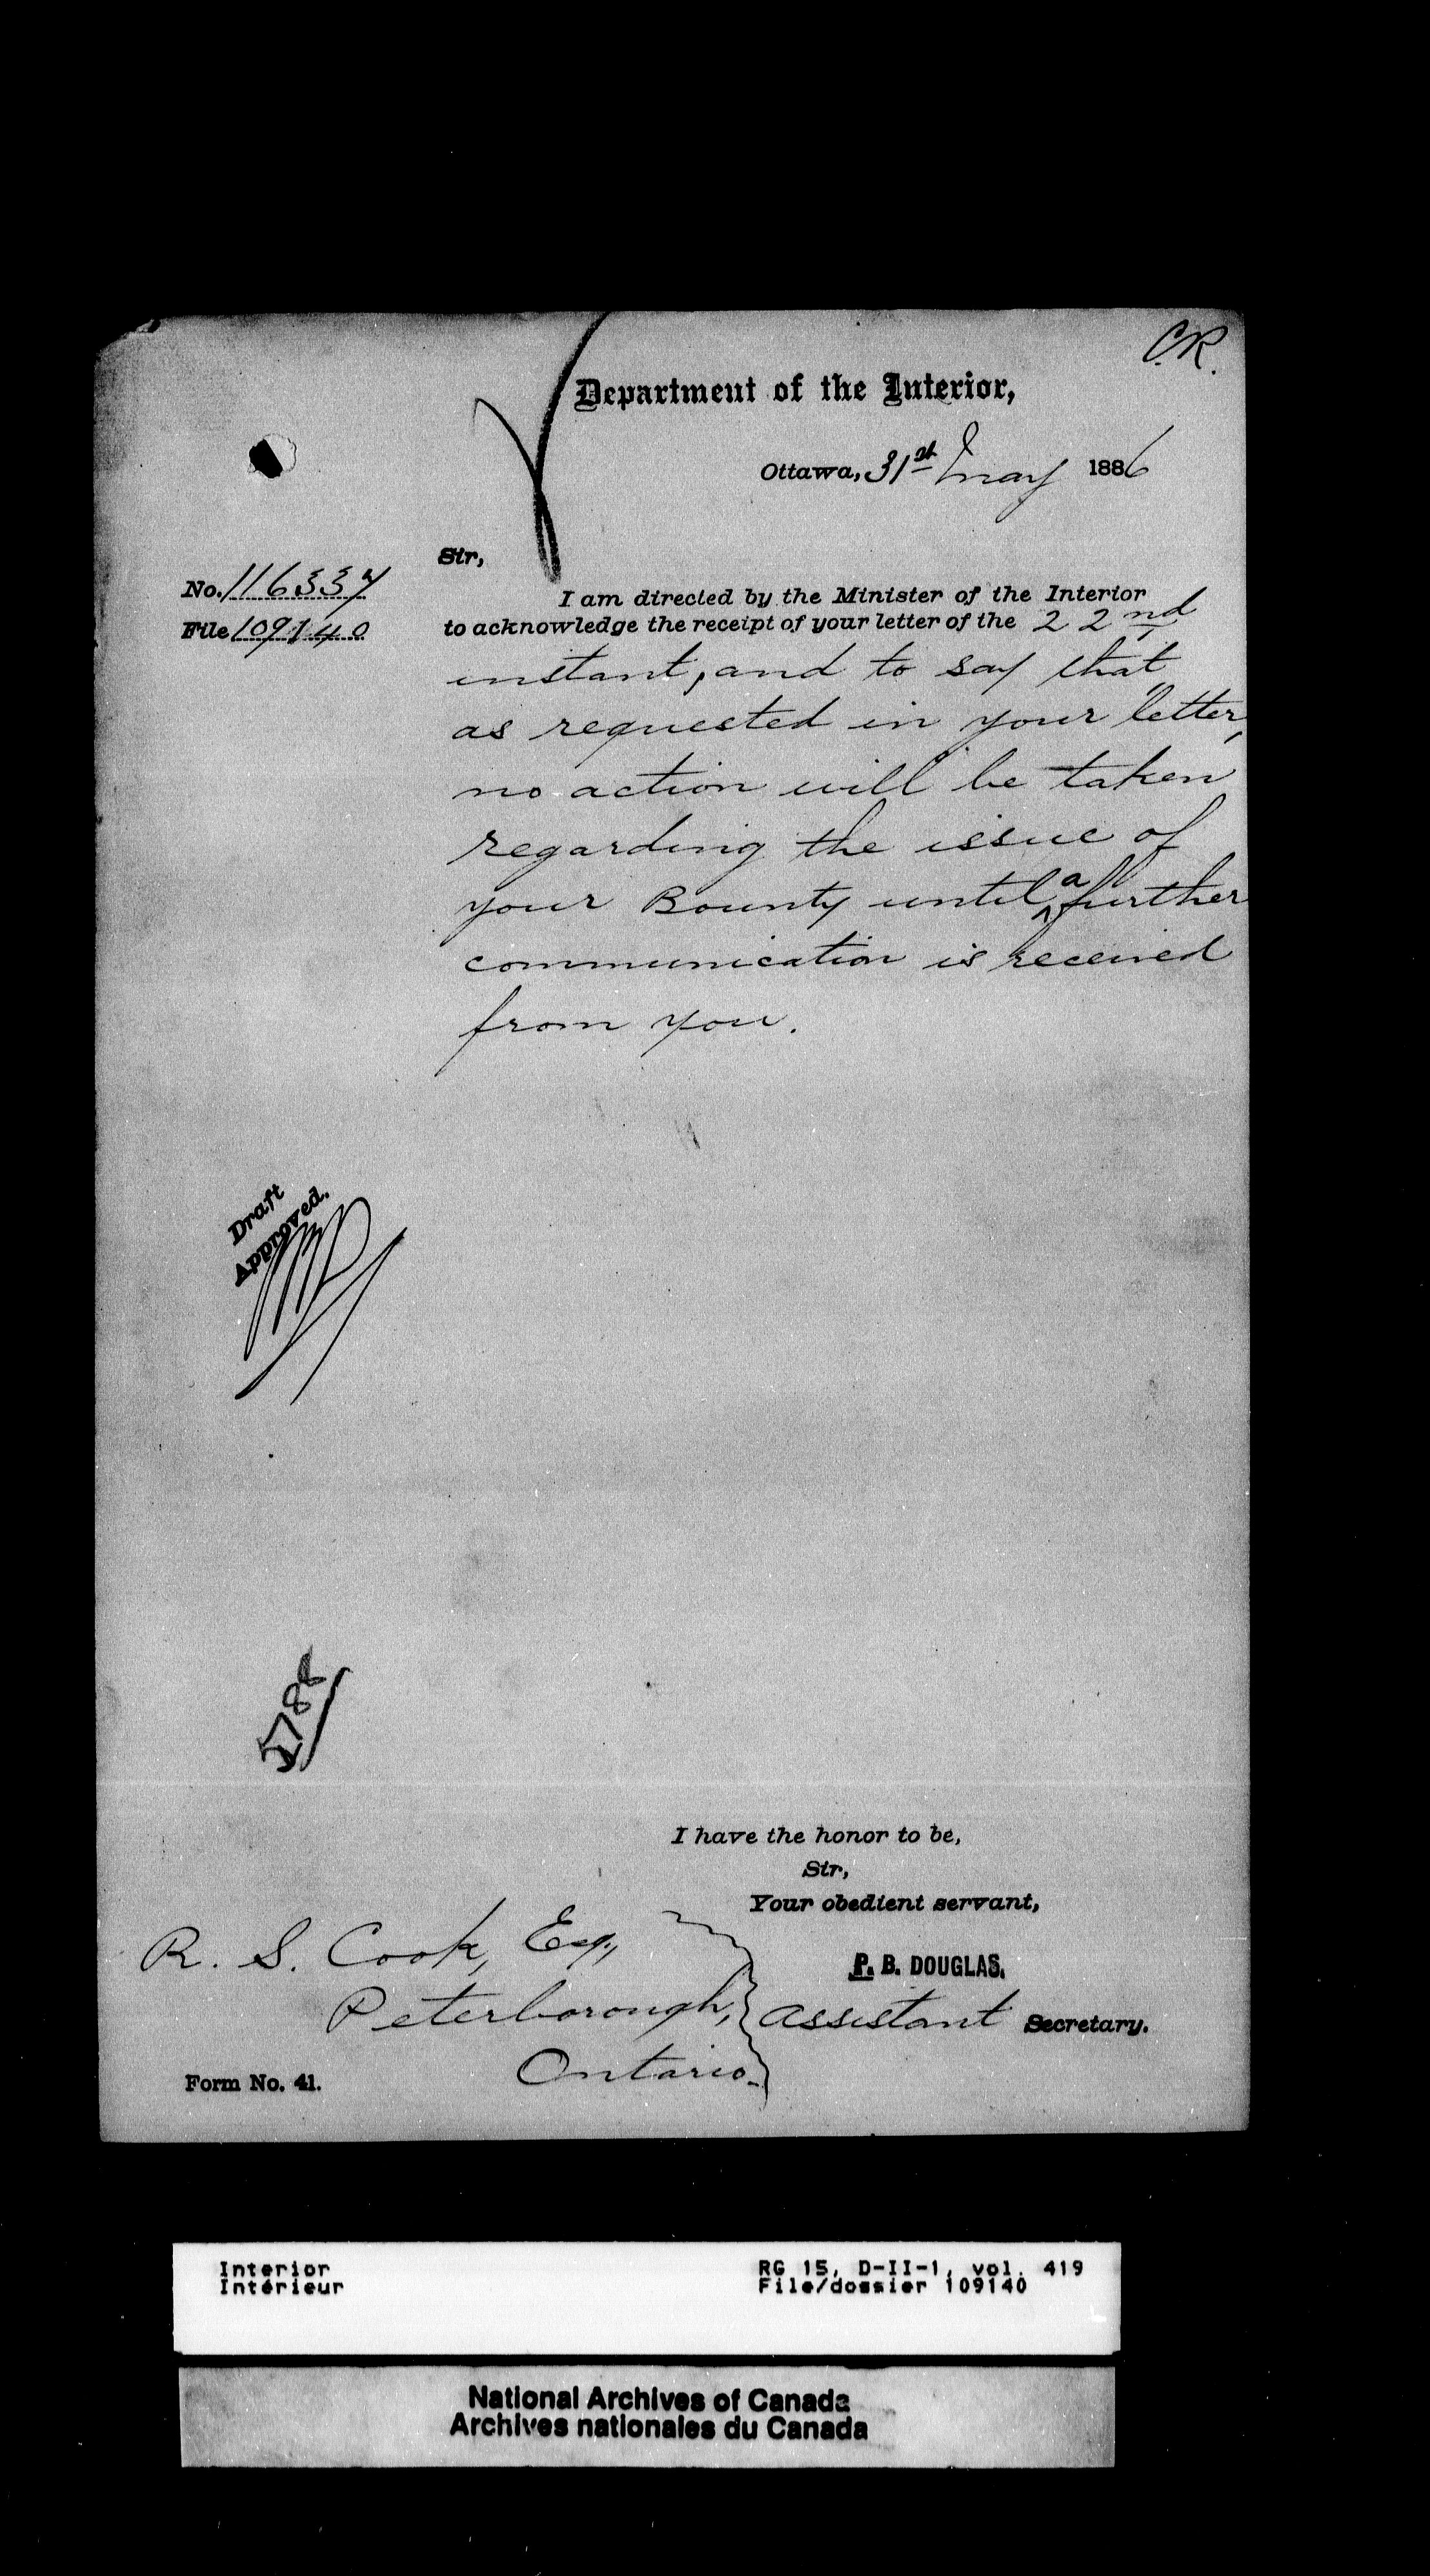 C.R.
Department of the Interior,
Ottawa, 31st May 1886
Sir,
No. 116337
File 109140
I am directed by the Minister of the Interior
to acknowledge the receipt of your letter of the 22nd
instant, and to say that
as requested in your letter,
no action will be taken
regarding the issue of
your Bounty until a further
communication is received
from you.
Draft
Approved.
I have the honor to be,
Sir,
Your obedient servant,
R. S. Cook, Esq.,
P. B. DOUGLAS.
Peterborough,
Assistant Secretary.
Ontario.
Form No. 41.
Interior
Intérieur
RG 15, D-II-1, vol. 419
File/dossier 109140
National Archives of Canada
Archives nationales du Canada